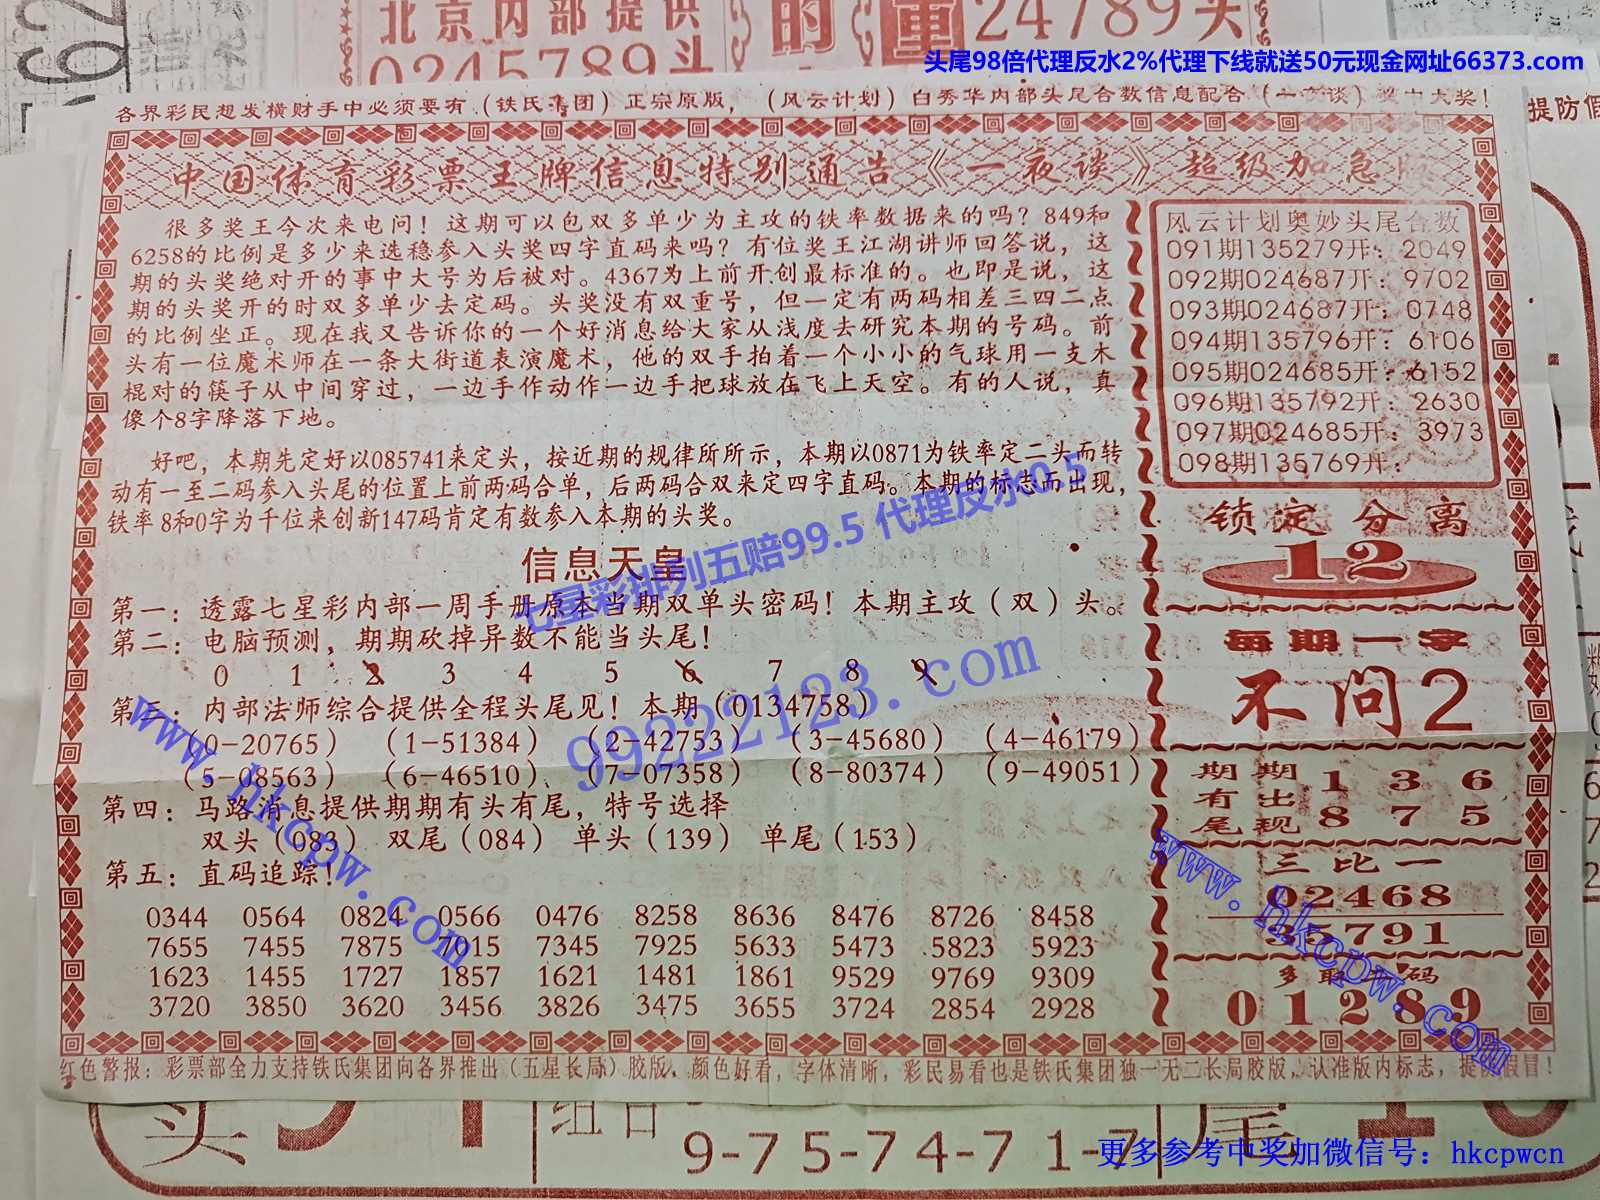 北京内部提供
0245789头
的
重
24789头
头尾98倍代理反水2%代理下线就送50元现金网址66373.com
各界彩民想发横财手中必须要有（铁氏集团）正宗原版，（风云计划）白秀华内部头尾合数信息配合（一夜谈）奖中大奖！
提防假
中国体育彩票王牌信息特别通告《一夜谈》超级加急版
很多奖王今次来电问！这期可以包双多单少为主攻的铁率数据来的吗？849和
6258的比例是多少来选稳参入头奖四字直码来吗？有位奖王江湖讲师回答说，这
期的头奖绝对开的事中大号为后被对。4367为上前开创最标准的。也即是说，这
期的头奖开的时双多单少去定码。头奖没有双重号，但一定有两码相差三四二点
的比例坐正。现在我又告诉你的一个好消息给大家从浅度去研究本期的号码。前
头有一位魔术师在一条大街道表演魔术，他的双手拍着一个小小的气球用一支木
棍对的筷子从中间穿过，一边手作动作一边手把球放在飞上天空。有的人说，真
像个8字降落下地。
好吧，本期先定好以085741来定头，按近期的规律所所示，本期以0871为铁率定二头而转
动有一至二码参入头尾的位置上前两码合单，后两码合双来定四字直码。本期的标志而出现，
铁率8和0字为千位来创新147码肯定有数参入本期的头奖。
信息天皇
第一：透露七星彩内部一周手册原本当期双单头密码！本期主攻（双）头。
第二：电脑预测，期期砍掉异数不能当头尾！
0 1 2 3 4 5 6 7 8 9
第三：内部法师综合提供全程头尾见！本期（0134758）
（0-20765）（1-51384）（2-42753）（3-45680）（4-46179）
（5-08563）（6-46510）、（7-07358）（8-80374）（9-49051）
第四：马路消息提供期期有头有尾，特号选择
双头（083） 双尾（084） 单头（139） 单尾（153）
第五：直码追踪！
0344 0564 0824 0566 0476 8258 8636 8476 8726 8458
7655 7455 7875 7015 7345 7925 5633 5473 5823 5923
1623 1455 1727 1857 1621 1481 1861 9529 9769 9309
3720 3850 3620 3456 3826 3475 3655 3724 2854 2928
风云计划奥妙头尾合数
091期135279开：2049
092期024687开：9702
093期024687开：0748
094期135796开：6106
095期024685开：6152
096期135792开：2630
097期024685开：3973
098期135769开：
锁定分离
12
每期一字
不问2
期期 1 3 6
有出
尾现 8 7 5
三比一
02468
35791
多取 码
01289
红色警报：彩票部全力支持铁氏集团向各界推出（五星长局）胶版，颜色好看，字体清晰，彩民易看也是铁氏集团独一无二长局胶版，认准版内标志，提防假冒！
七星彩排列五赔99.5 代理反水0.5
99222123.com
www.hkcpw.com
www.hkcpw.com
头
组合
9-7 5-7 4-7 1-7
尾
更多参考中奖加微信号：hkcpwcn